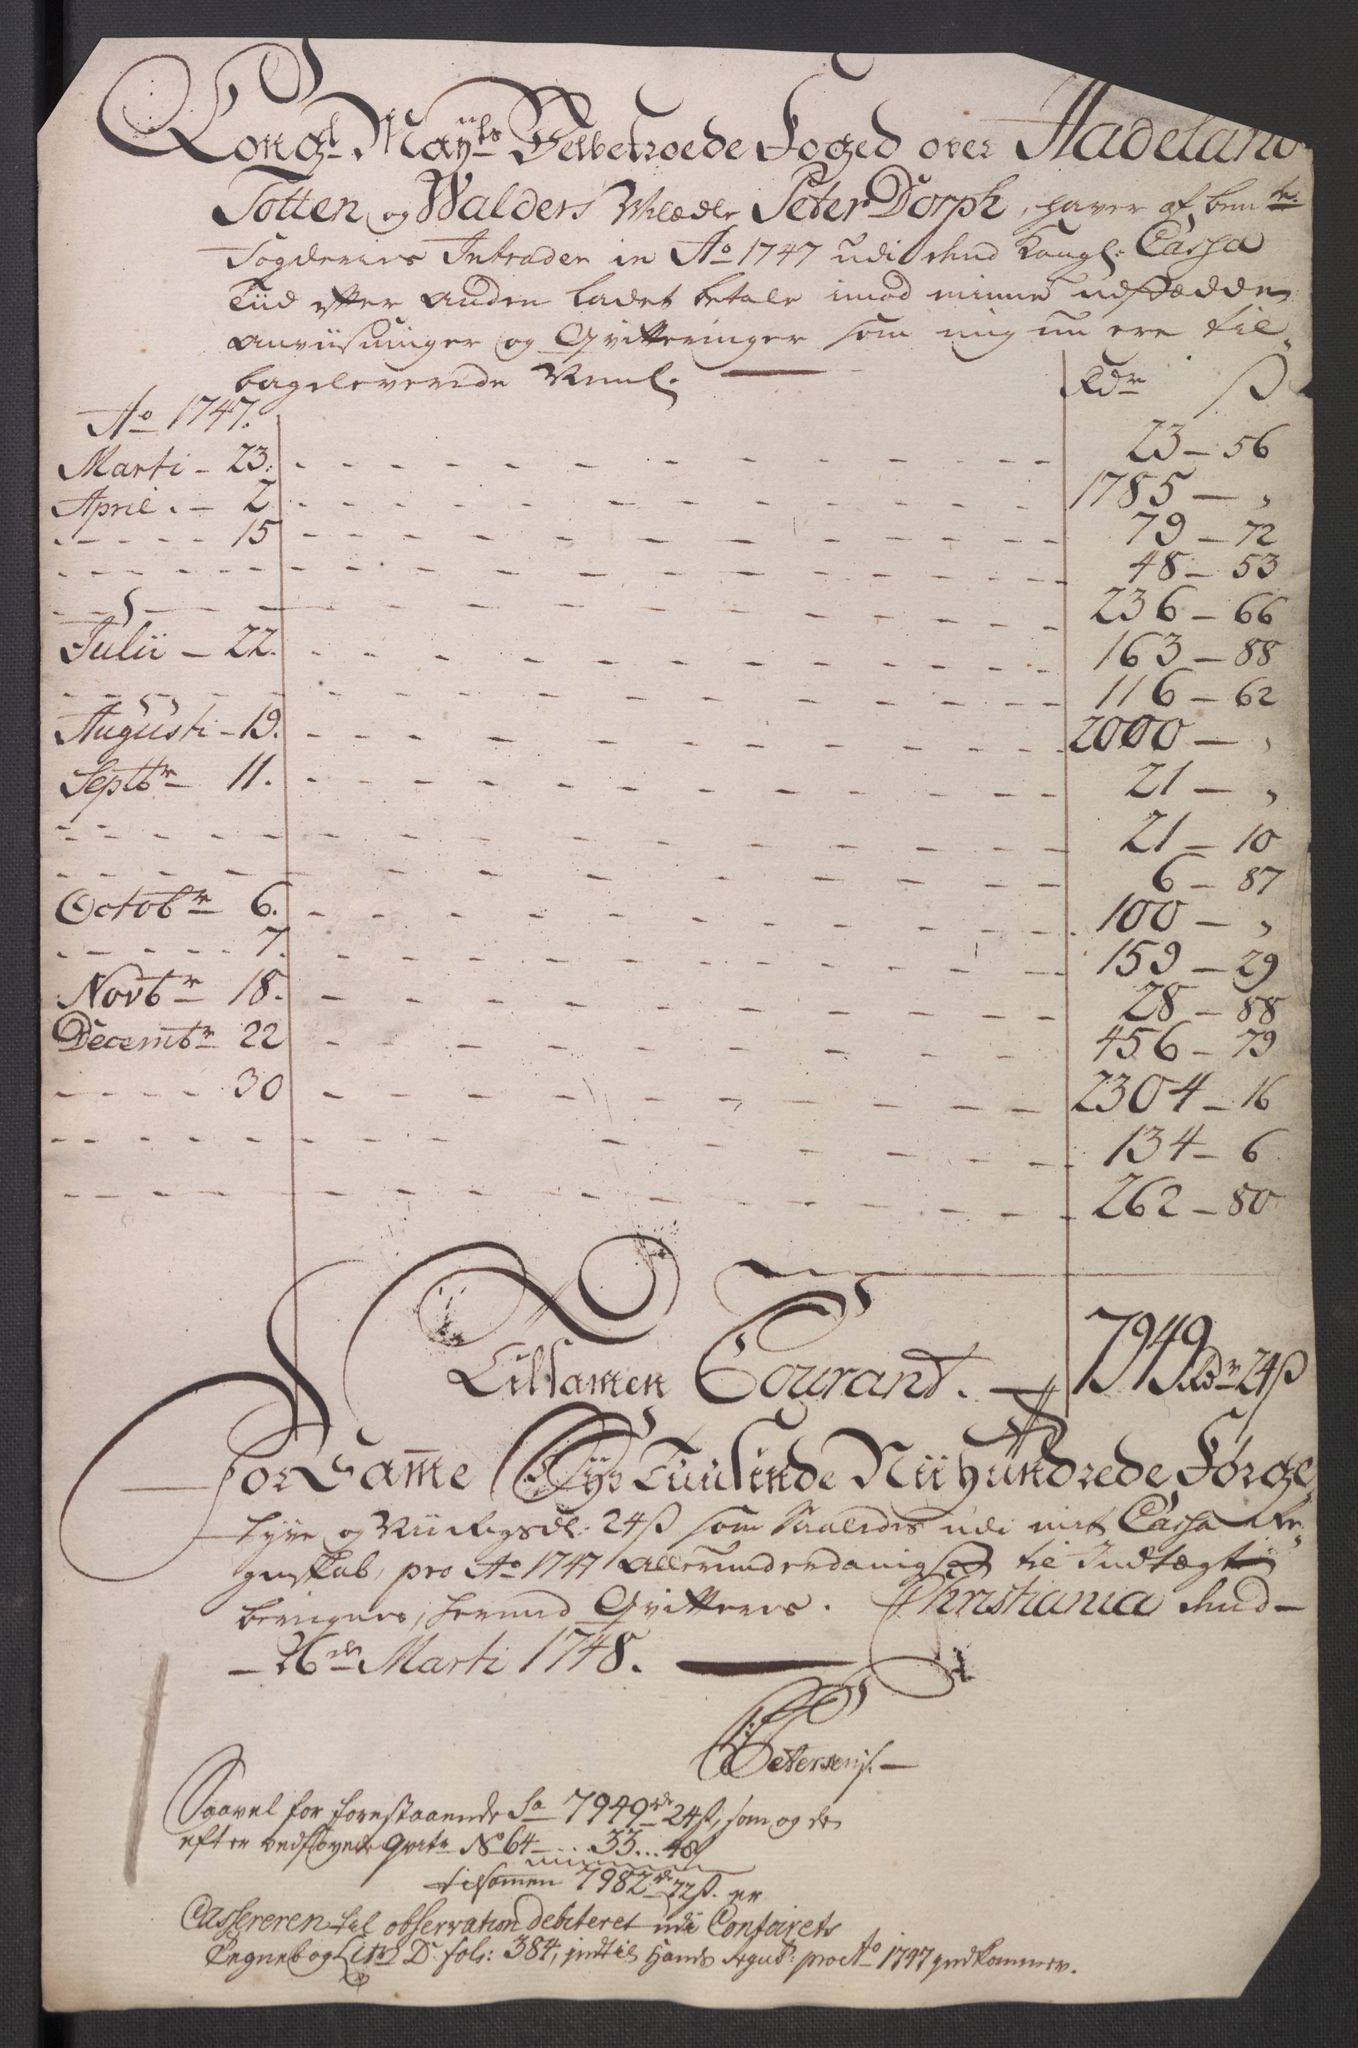 Kongl. Mayts Velbetroede Foged over Hadeland
Totten og Walders Velædle Peter Dorph, haver af bemte
Fogderies Intrader in Ao 1747 udi dend Kongl: Cassa
Tiid efter anden ladet betale imod minne udstædde
Anviisninger og Qvitteringer som mig nu ere til„
bageleverede Neml.
Rdr ß
Ao 1747.
Marti – 23. 23 – 56
April. – 2 1785 – „
- - - - - 15 79 – 72
48 – 53
236 – 66
Julii – 22. 163 – 88
116 – 62
Augusti – 19. 2000 – „
Septbr – 11. 21 – „
21 – 10
6 – 87
Octobr 6. 100 – „
- - - - - 7. 159 – 29
Novbr – 18. 28 – 88
Decembr 22 456 – 79
- - - - - 30 2304 – 16
134 – 6
262 – 80
Tilsamen Courant. – 7949 Rdr 24 ß
For Samme Syv Tuusinde Nii hundrede Førge„
tyve og Nii Rigsdl: 24 ß som saaledes udi mit Cassa Re„
genskab, pro Ao 1747 allerunderdanigst til Indtægt
beregnes, herved Qvitteres. Christiania dend –
– 26de Marti 1748.
Petersen.
Saavel for forestaaende Sa 7949 rdr 24 ß, som og de
efter vedføyede qvitr No 64 ... 33 ... 48
tilsamen 7982 rdr 72 ß. er
Cassereren til observation debiteret udi Contoirets
Regnebog Litr D. fol: 384, indtil hands Regnsk: pro Ao 1747 indkommer.